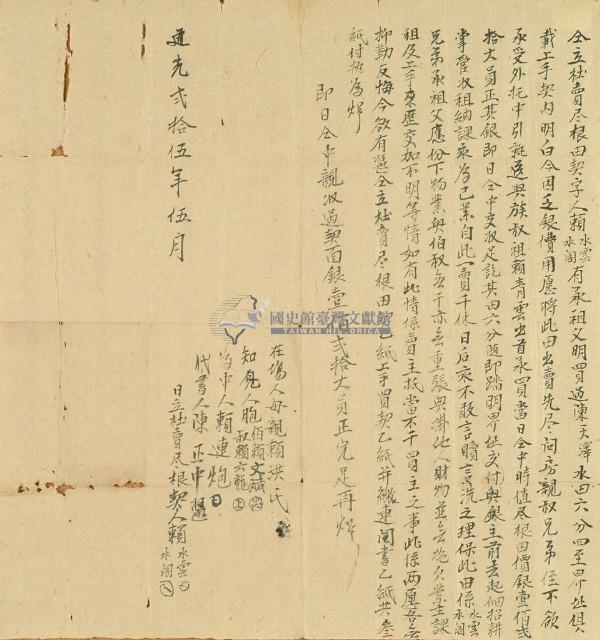 仝立杜賣尽根田契字人賴水雲水闊有承祖父明買過陳天澤水田六分四至界址俱
載上手契内明白今因乏銀費用愿將此田出賣先尽问房親叔兄弟侄不欲
承受外托中引就送與族叔祖賴青雲出首承買當日仝中時值尽根田價銀壹佰弍
拾大員正其銀即日仝中交收足訖其田六分隨即踏明界址交付與銀主前去起佃招耕
掌管收租納課永為己業自此一賣千休日后永不敢言贖言洗之理保此田係水雲水闊
兄弟承祖父應份下物業與伯叔無干亦無重張典掛他人財物並無拖欠業主課
祖及上手來歷交加不明等情如有此情係賣主抵當不干買主之事此係兩愿各無
抑勒反悔今欲有憑仝立杜賣尽根田契乙紙上手買契乙紙并繳連鬮書乙紙共叁
紙付執為炤
即日仝中親收過契面銀壹佰弍拾大員正完足再炤
在塲人母親賴洪氏
知見人胞伯賴文斌叔賴六龍
為中人賴連炮
代書人陳正中
道光弍拾伍年伍月
日立杜賣尽根契人賴水雲水闊
國史館臺灣文獻館
TAIWAN HISTORICA